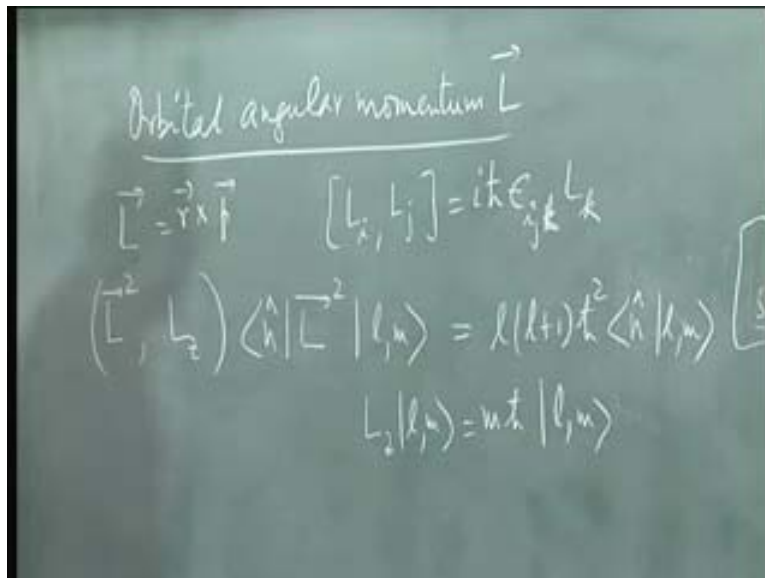 Orbital angular momentum L⃗
L⃗ = r⃗ × p⃗ [L_i, L_j] = iħ ϵ_ijk L_k
(L⃗², L_z) ⟨n̂|L⃗²|l,m⟩ = l(l+1)ħ² ⟨n̂|l,m⟩
L_z|l,m⟩ = mħ |l,m⟩